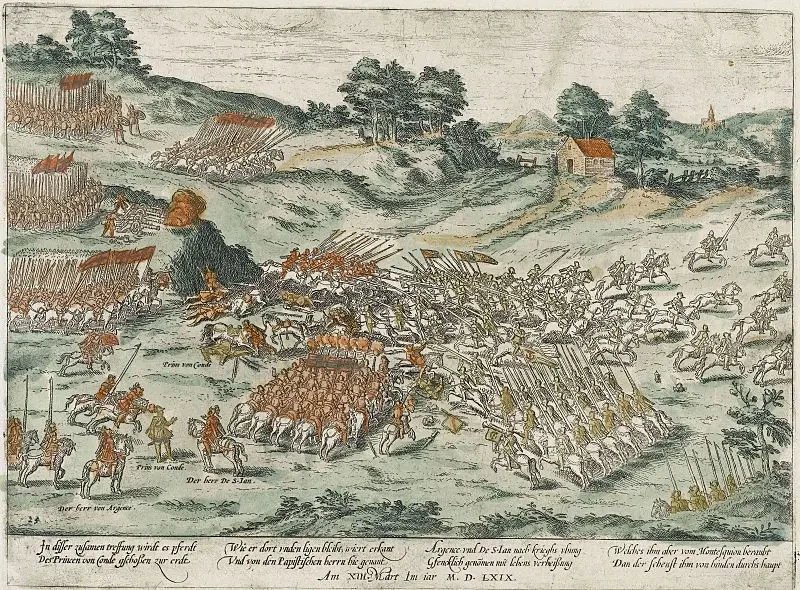 Prins von Conde
Prins von Conde
Der herr De S. Ian.
Der herr von Argence
In disser zusamen treffung wirdt es pferdt
Des Princen von Conde gschossen zur erdt
Wie er dort vnden ligen bleibt, wiert erkant
Vnd von den Papistischen herrn hie genant
Argence vnd De S. Ian nach krieghs vbung
Gfencklich genomen mit lebens verheissung
Welches ihm aber vom Montesquion beraubt
Dan der schenst ihm von hinden durchs haupt
Am XIII. Mart Im iar M. D. LXIX.